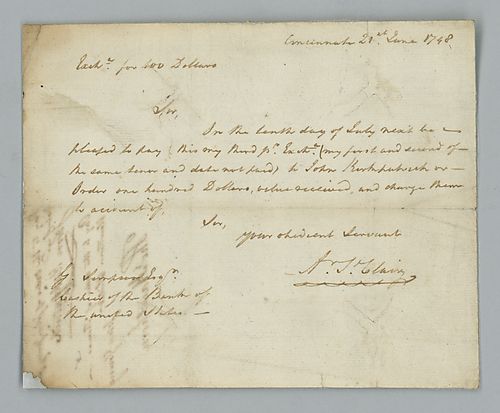 Cincinnati 21st June 1798.
Exche. for 100 Dollars
Sir,
On the tenth day of July next be
pleased to pay (this my third pr. Exche. (my first and second of
the same tenor and date not paid) to John Kirkpatrick or
Order one hundred Dollars, value received, and charge them
to account of,
Sir,
Your obedient Servant
Ar. St. Clair
G. Simpson Esqr.
Cashier of the Bank of
the united States.